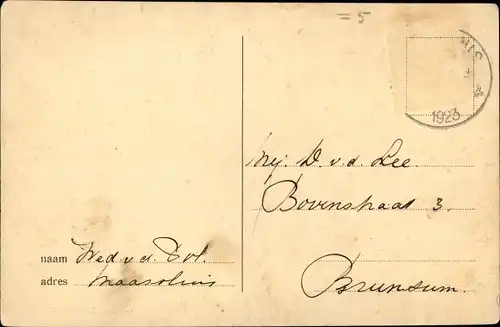 = 5
1923
Mej. D. v. d. Lee.
Bovenstraat 3.
Brunsum.
naam Wed. v. d. Pol.
adres Maassluis